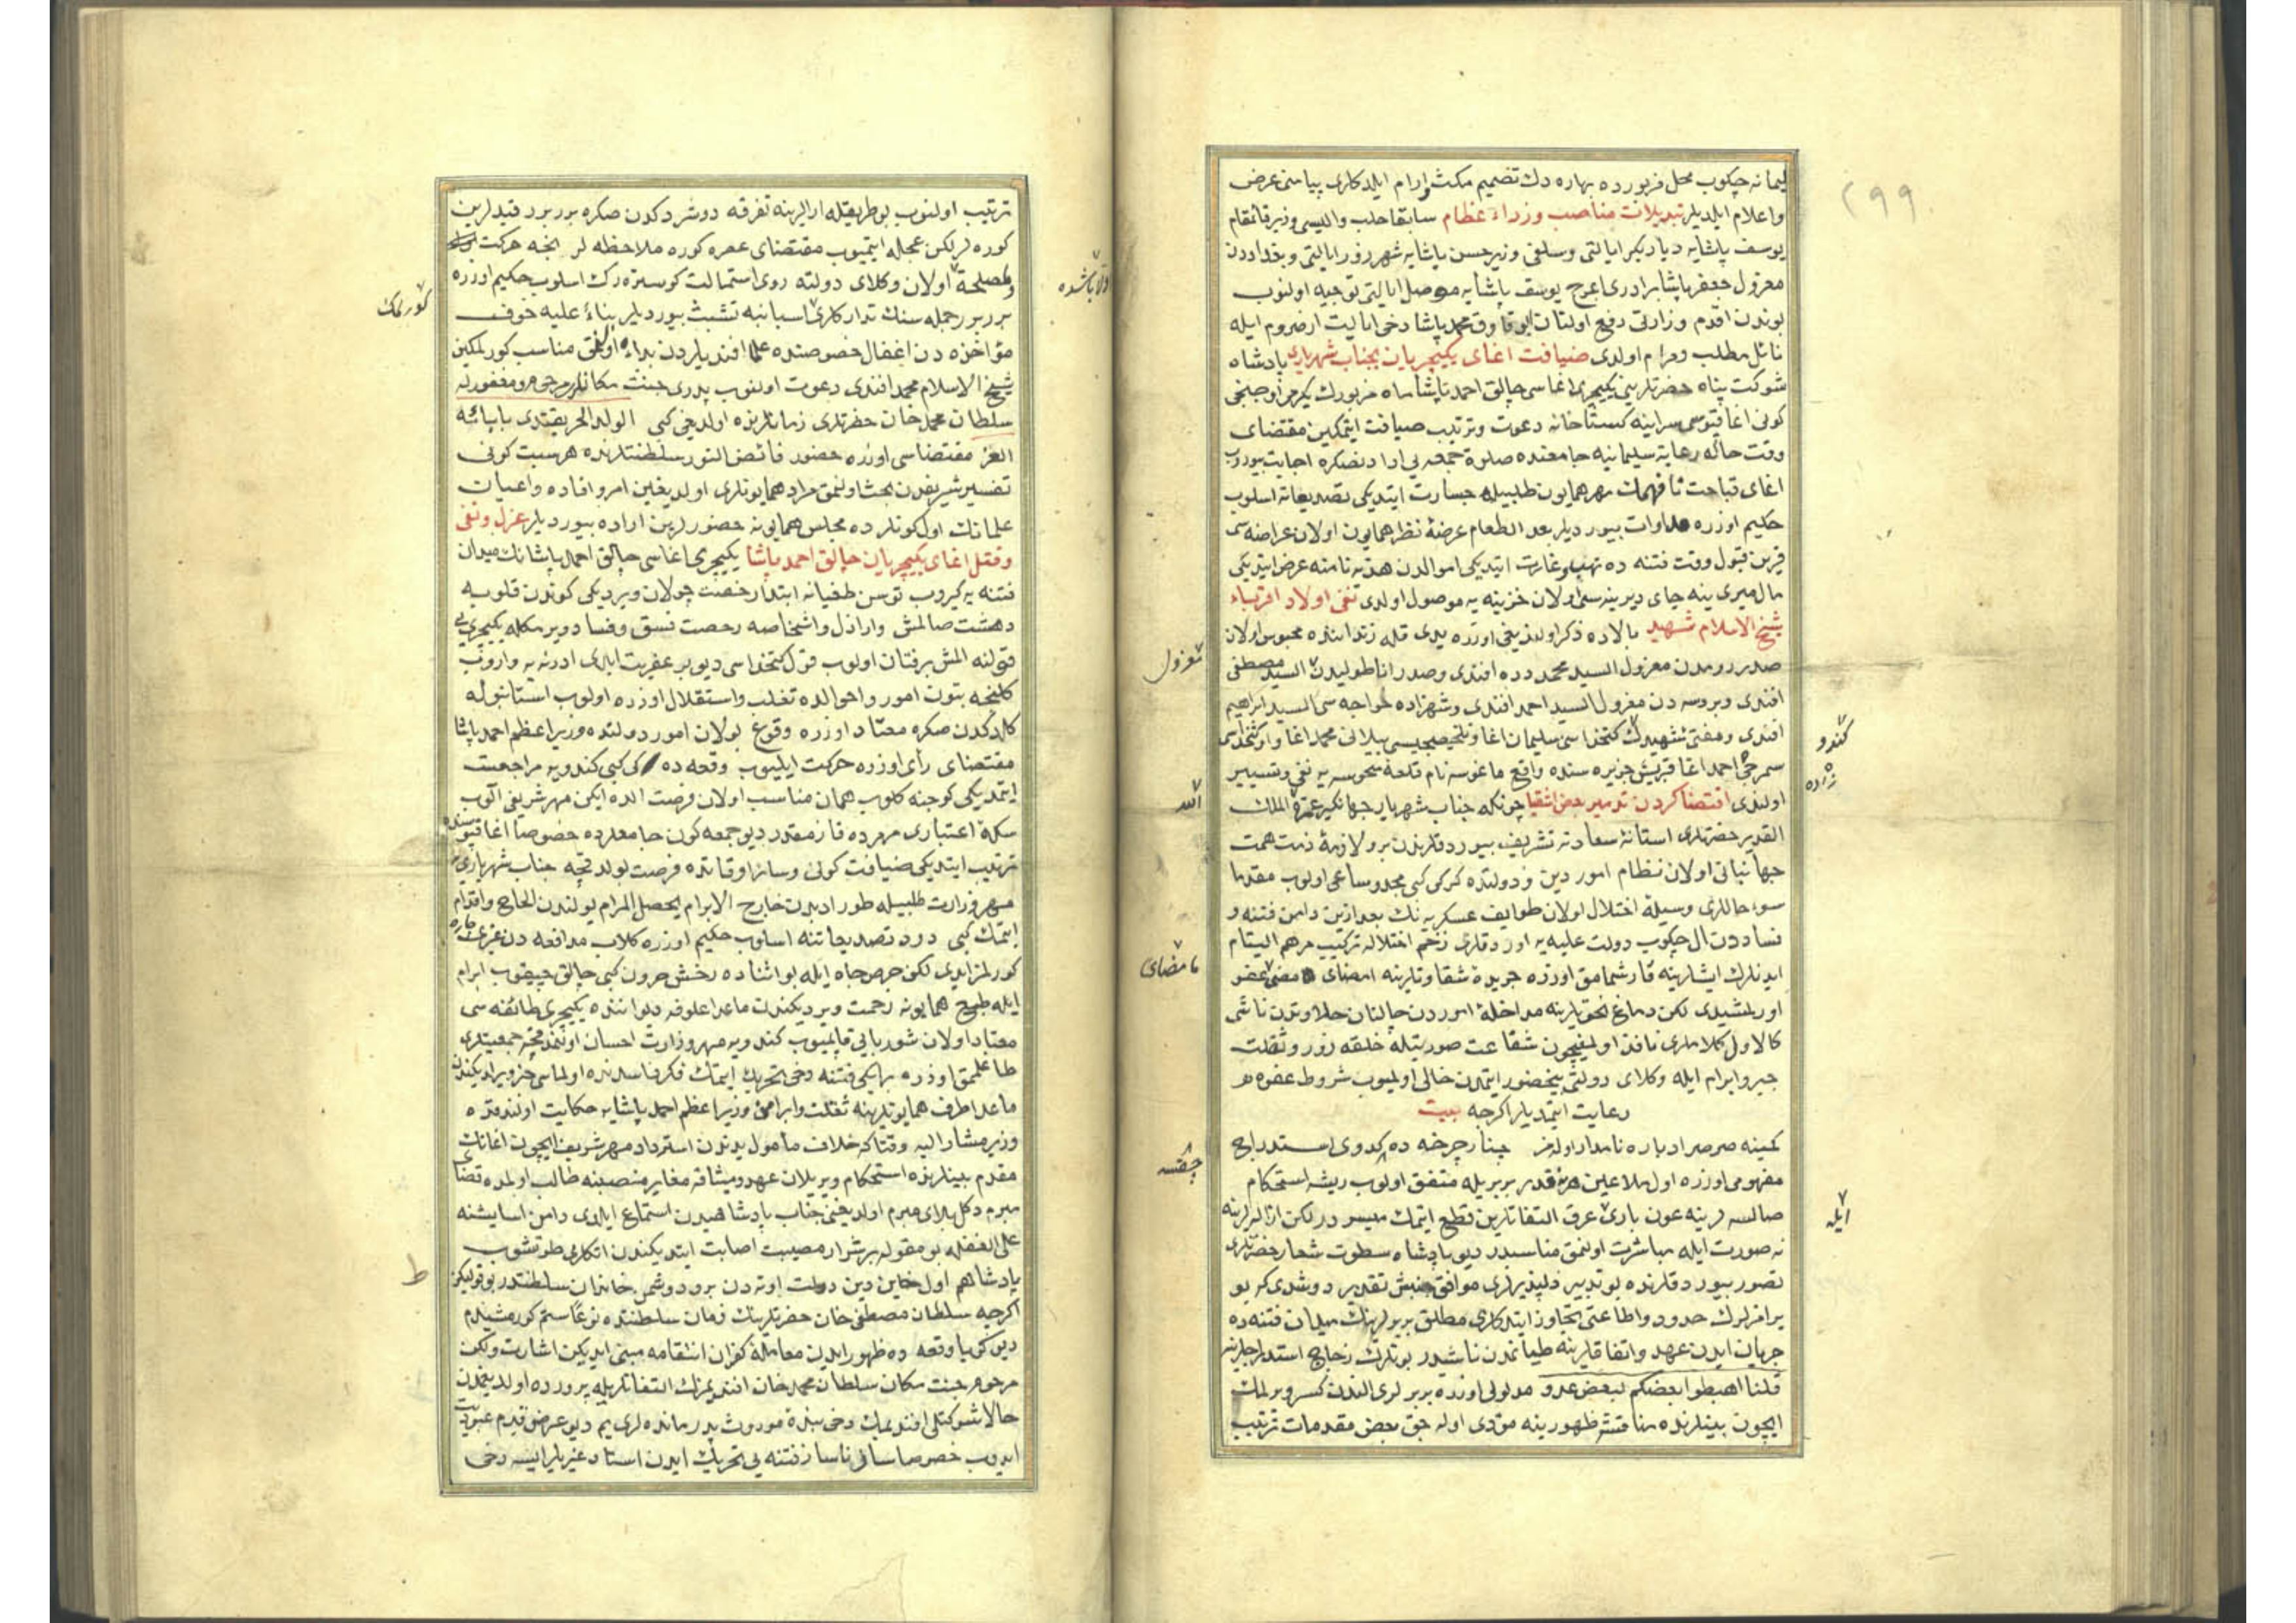 ٢٩٩
ليمانه چكوب محل مزبورده بهاره دك تصميم مكث وارام ايلدكلرى پياسنى عرض
واعلام ايلديلر تبديلات مناصب وزراء عظام سابقا حلب واليسى وزير قائمقام
يوسف پاشايه دياربكر ايالتى وسلفى وزير حسن پاشايه شهرزور ايالتى وبغداددن
معزول جعفر پاشا برادرى اعرج يوسف پاشايه موصل ايالتى توجيه اولنوب
بوندن اقدم وزارتى رفع اولنان ابو قاوق محمد پاشا دخى ايالت ارضروم ايله
نائل مطلب ومرام اولدى ضيافت اغاى يكيچريان بجناب شهريارى پادشاه
شوكت پناه حضرتلرينى يكيچرى اغاسى چالق احمد پاشا ماه مزبورك يكرمى اوچنجى
كونى اغا قپوسى سراينه كستاخانه دعوت وترتيب ضيافت ايتمكين مقتضاى
وقت حاله رعاية سليمانيه جامعنده صلوة جمعه يى ادادنصكره اجابت بيوروب
اغاى قباحت نافهمك مهر همايون طلبيله جسارت ايتديكى تصديعاته اسلوب
حكيم اوزره مداوات بيورديلر بعد الطعام عرضهٔ نظر همايون اولان عراضه سى
قرين قبول وقت فتنه ده نهب وغارت ايتديكى اموالدن هديه نامنه عرض ايتديكى
مال ميرى ينه جاى ديرينه سى اولان خزينه يه موصول اولدى نفى اولاد اقرباء
شيخ الاسلام شهيد بالاده ذكر اولنديغى اوزره يدى قله زنداننده محبوس اولان
صدر رومدن معزول السيد محمد دده افندى وصدر اناطوليدن السيد مصطفى
معزول
افندى وبروسه دن معزول السيد احمد افندى وشهزاده خواجه سى السيد ابراهيم
افندى ومفتئ شهيدك كتخداسى سليمان اغا وتلخيصجيسى بيلانى محمد اغا واو كتخداسى
كندو
سمرجى احمد اغا قبريس جزيره سنده واقع ماغوسه نام قلعهٔ منحوسه يه نفى وتسيير
زاده
اولندى اقتضا كردن تدمير بعض اشقيا چونكه جناب شهريار جهانكير عمره الملك
الله
القدير حضرتلرى استانهٔ سعادته تشريف بيوردقلرندن برو لازمهٔ ذمت همت
جهانبانى اولان نظام امور دين ودولتده كركى كبى مجد وساعى اولوب مقدما
سوء حاللرى وسيلهٔ اختلال اولان طوايف عسكريه نك بعد ازين دامن فتنه و
فساددن ال چكوب دولت عليه يه اوردقلرى زخم اختلاله تركيب مرهم اليتام
ايدنلرك ايشلرينه قارشمامق اوزره جريدهٔ شقاوتلرينه امضاى مضى عفو
مامضاى
اورلمشيدى لكن دماغ نحوتلرينه مداخلهٔ اموردن چالنان حلاوتدن ناشى
كالاول كلاملرى نافذ اولمغيچون شفاعت صورتيله خلقه زور وثقلت
جبر وابرام ايله وكلاى دولتى بيحضور ايتمدن خالى اولميوب شروط عفوه
رعايت ايتمديلر اكرچه بيت
كمينه صرصر ادباره نامدار اولمز چنار چرخه ده كدوى استدراج
چقسه
مفهومى اوزره اول ملاعين هر نه قدر بربريله متفق اولوب ريشه استحكام
صالسه لر ينه عون بارى عرق التفاتلرين قطع ايتمك ميسر در لكن ازاله لرينه
ايله
نه صورت ايله مباشرت اولنمق مناسبدر ديو پادشاه سطوت شعار حضرتلرى
تصور بيوردقلرنده بو تدبير دلپذيرلرى موافق جنبش تقدير دوشدى كه بو
برامزلرك حدود واطاعتى تجاوز ايتدكلرى مطلق بربرلرينك ميلان فتنه ده
جريان ايدن عهد واتفاقلرينه طيانمدن ناشيدر بونلرك زجاج استدراجلرين
قلنا اهبطوا بعضكم لبعض عدو مدلولى اوزره بربرلرى الندن كسر ويرلمك
ايچون بينلرنده منافشه ظهورينه مؤدى اوله جق بعض مقدمات ترتيب
ترتيب اولنوب بو طريقله ارالرينه تفرقه دوشردكدن صكره برر برر قيدلرين
كوره لر لكن عجله ايتميوب مقتضاى عصره كوره ملاحظه لر ايله حركت
ومصلحة اولان وكلاى دولته روى استمالت كوستره رك اسلوب حكيم اوزره
برر برر جمله سنك تداركلرى اسبابنه تشبث بيورديلر بناءً عليه خوف
مؤاخذه دن اغفال خصوصنده علما افنديلردن بداء اولنمق مناسب كورلمكين
كورلمك
شيخ الاسلام محمد افندى دعوت اولنوب پدرى جنت مكانلرى مرحوم ومغفور له
سلطان محمد خان حضرتلرى زمانلرنده اولديغى كبى الولد الحر يقتدى بابائه
الغر مقتضاسى اوزره حضور فائض النور سلطنتلرنده هر سبت كونى
تفسير شريفدن بحث اولنمق مراد همايونلرى اولديغين امر وافاده واعيان
علمانك اول كونلرده مجلس همايونه حضورلرين اراده بيورديلر عزل ونفى
وقتل اغاى يكيچريان چالق احمد پاشا يكيچرى اغاسى چالق احمد پاشانك ميدان
فتنه يه كيروب توسن طغيانه ابتدا رخصت جولان ويرديكى كوندن قلوبه
دهشت صالمش واراذل واشخاصه رخصت فسق وفساد ويرمكله يكيچرى يى
قبولنه المش برفتان اولوب قول كتخداسى ديو بر عفريت ايلدى ادرنه يه واروب
كلنجه بتون امور واحوالده تغلب واستقلال اوزره اولوب استانبوله
كلدكدن صكره معتاد اوزره وقوع بولان امور دولتده وزير اعظم احمد پاشا
مقتضاى رأى اوزره حركت ايليوب وقعه ده كى كبى كندويه مراجعت
ايتمديكى كوجنه كلوب همان مناسب اولان فرصت الده ايكن مهر شريفى آلوب
سكهٔ اعتبارى مهرده قازمقدر ديو جمعه كون جامعلرده خصوصا اغا قپوسنده
ترتيب ايتديكى ضيافت كونى وسائر اوقاتده فرصت بولدقچه جناب شهريارى يه
مهر وزارت طلبيله طور ادبدن خارج الابرام يحصل المرام يولندن الحاح واقدام
ايتمك كبى درد تصديعاتنه اسلوب حكيم اوزره كلاب مدافعه دن غيرى چاره
كورلمز ايدى لكن حرص جاه ايله بو اثناده رخش حرون كبى چالق چيقوب ابرام
ايله طبع همايونه زحمت ويرديكندن ماعدا علوفه ديواننده يكيچرى طائفه سى
معتاد اولان شوربايى قاپميوب كندويه مهر وزارت احسان اولنمدقچه جمعيتلرى
طاغلمق اوزره يكى فتنه دخى تحريك ايتمك فكر فاسدنده اولماسى خبر ويرلديكندن
ماعدا طرف همايونلرينه ثقلت وابرامى وزير اعظم احمد پاشايه حكايت اولندقده
وزير مشار اليه وقتا كه خلاف مأمول يدندن استرداد مهر شريف ايچون اغانك
مقدم بينلرنده استحكام ويريلان عهد وميثاقه مغاير منصبنه طالب اولمده قضاى
مبرم دكل بلاى مبرم اولديغنى جناب پادشاهيدن استماع ايلدى دامن اسايشنه
على الغفله بو مقوله بر شرار مصيبت اصابت ايتديكندن اتكلرى طوتشوب
ط
پادشاهم اول خاين دين دولت اوته دن برو دوشمن خاندان سلطنتدر بو قوللرى
اكرچه سلطان مصطفى خان حضرتلرينك زمان سلطنتده نوعا ستم كورمشيدم
ديو كويا وقعه ده ظهور ايدن معاملهٔ كفران انتقامه مبنى ايديكن اشارت ولكن
مرحوم جنت مكان سلطان محمد خان افنديمزك التفاتلريله پرورده اولديغمدن
حالا شوكتلى افنديمك دخى بندهٔ موروث پدر مانده لرى يم ديو عرض قدم عبوديت
ايدوب خصوصا سائر ناساز فتنه يى تحريك ايدن استاد غيريلر ايسه دخى